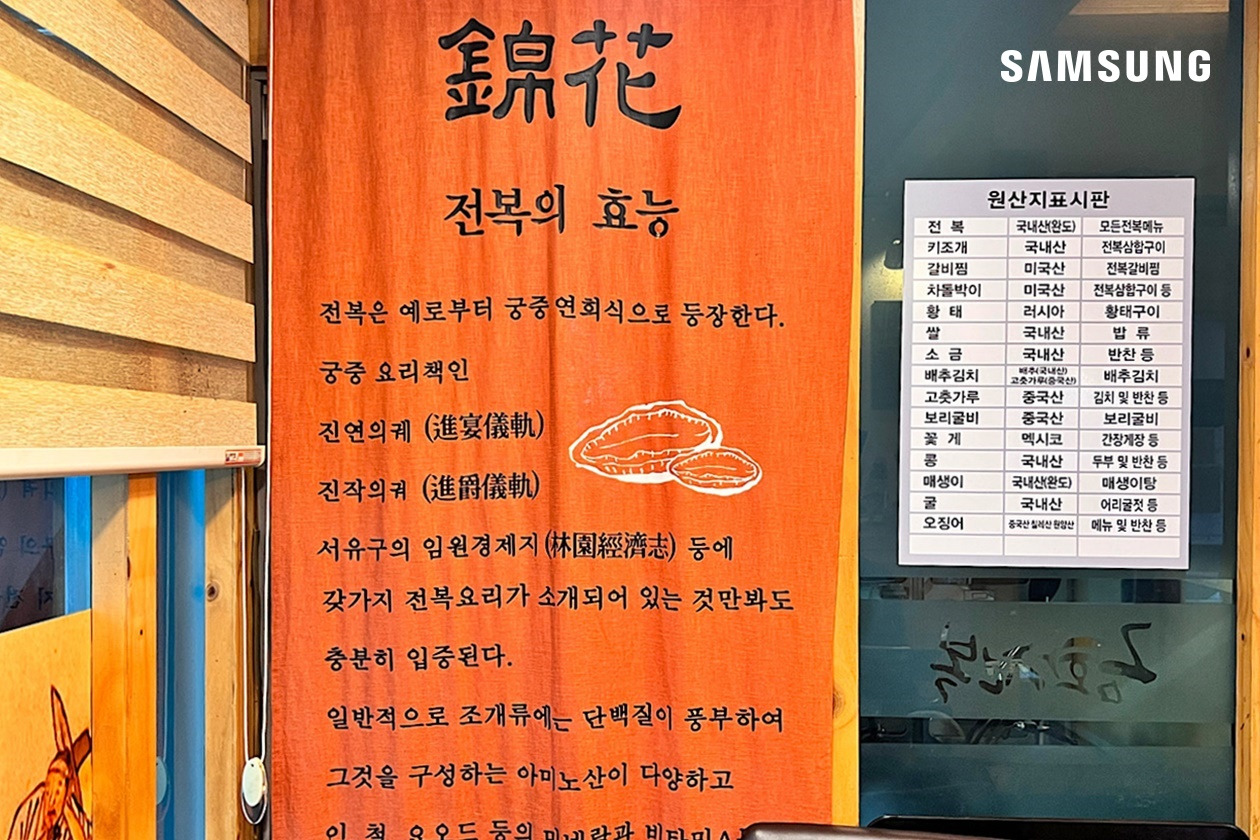 錦花
전복의 효능
전복은 예로부터 궁중연회식으로 등장한다.
궁중 요리책인
진연의궤 (進宴儀軌)
진작의궤 (進爵儀軌)
서유구의 임원경제지(林園經濟志) 등에
갖가지 전복요리가 소개되어 있는 것만봐도
충분히 입증된다.
일반적으로 조개류에는 단백질이 풍부하여
그것을 구성하는 아미노산이 다양하고
인, 철, 요오드 등의 미네랄과 비타민
SAMSUNG
원산지표시판
전 복 국내산(완도) 모든전복메뉴
키조개 국내산 전복삼합구이
갈비찜 미국산 전복갈비찜
차돌박이 미국산 전복삼합구이 등
황 태 러시아 황태구이
쌀 국내산 밥 류
소 금 국내산 반찬 등
배추김치 배추(국내산) 고춧가루(중국산) 배추김치
고춧가루 중국산 김치 및 반찬 등
보리굴비 중국산 보리굴비
꽃 게 멕시코 간장게장 등
콩 국내산 두부 및 반찬 등
매생이 국내산(완도) 매생이탕
굴 국내산 어리굴젓 등
오징어 중국산 칠레산 원양산 메뉴 및 반찬 등